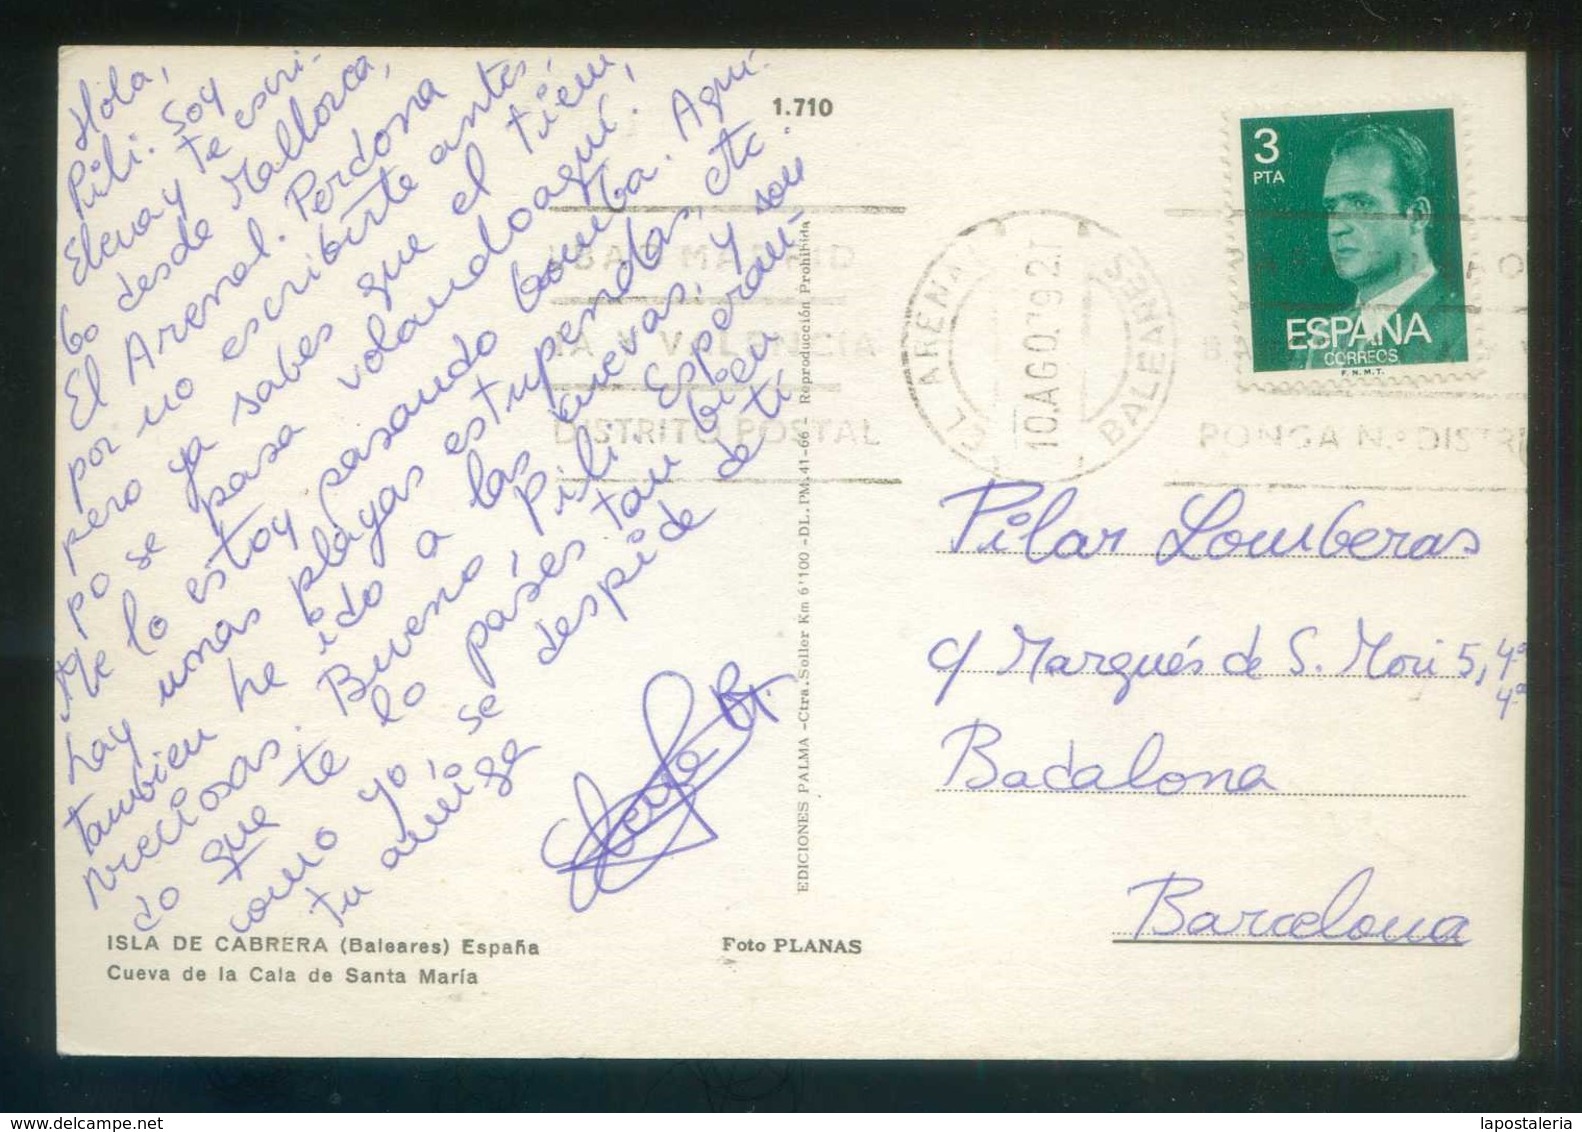 Hola,
Pili. Soy
Elena y te escri-
bo desde Mallorca,
El Arenal. Perdona
por no escribirte antes,
pero ya sabes que el tiem
po se pasa volando aquí!
Me lo estoy pasando bomba. Aquí
hay unas playas estupendas, etc.
también he ido a las cuevas, y son
preciosas. Bueno, Pili. Esperan-
do que te lo pases tan bien
como yo, se despide de tí
tu amiga
ISLA DE CABRERA (Baleares) España
Cueva de la Cala de Santa María
Foto PLANAS
1.710
EDICIONES PALMA - Ctra. Soller Km 6'100 - DL. PM. 41-66 - Reproducción Prohibida
MADRID
Y VALENCIA
DISTRITO POSTAL
EL ARENAL
10.AGO.79.2T
BALEARES
PONGA N.º DISTRI
3
PTA
ESPAÑA
CORREOS
F.N.M.T.
Pilar Lomberas
c/ Marqués de S. Mori 5, 4º
4ª
Badalona
Barcelona
lapostaleria